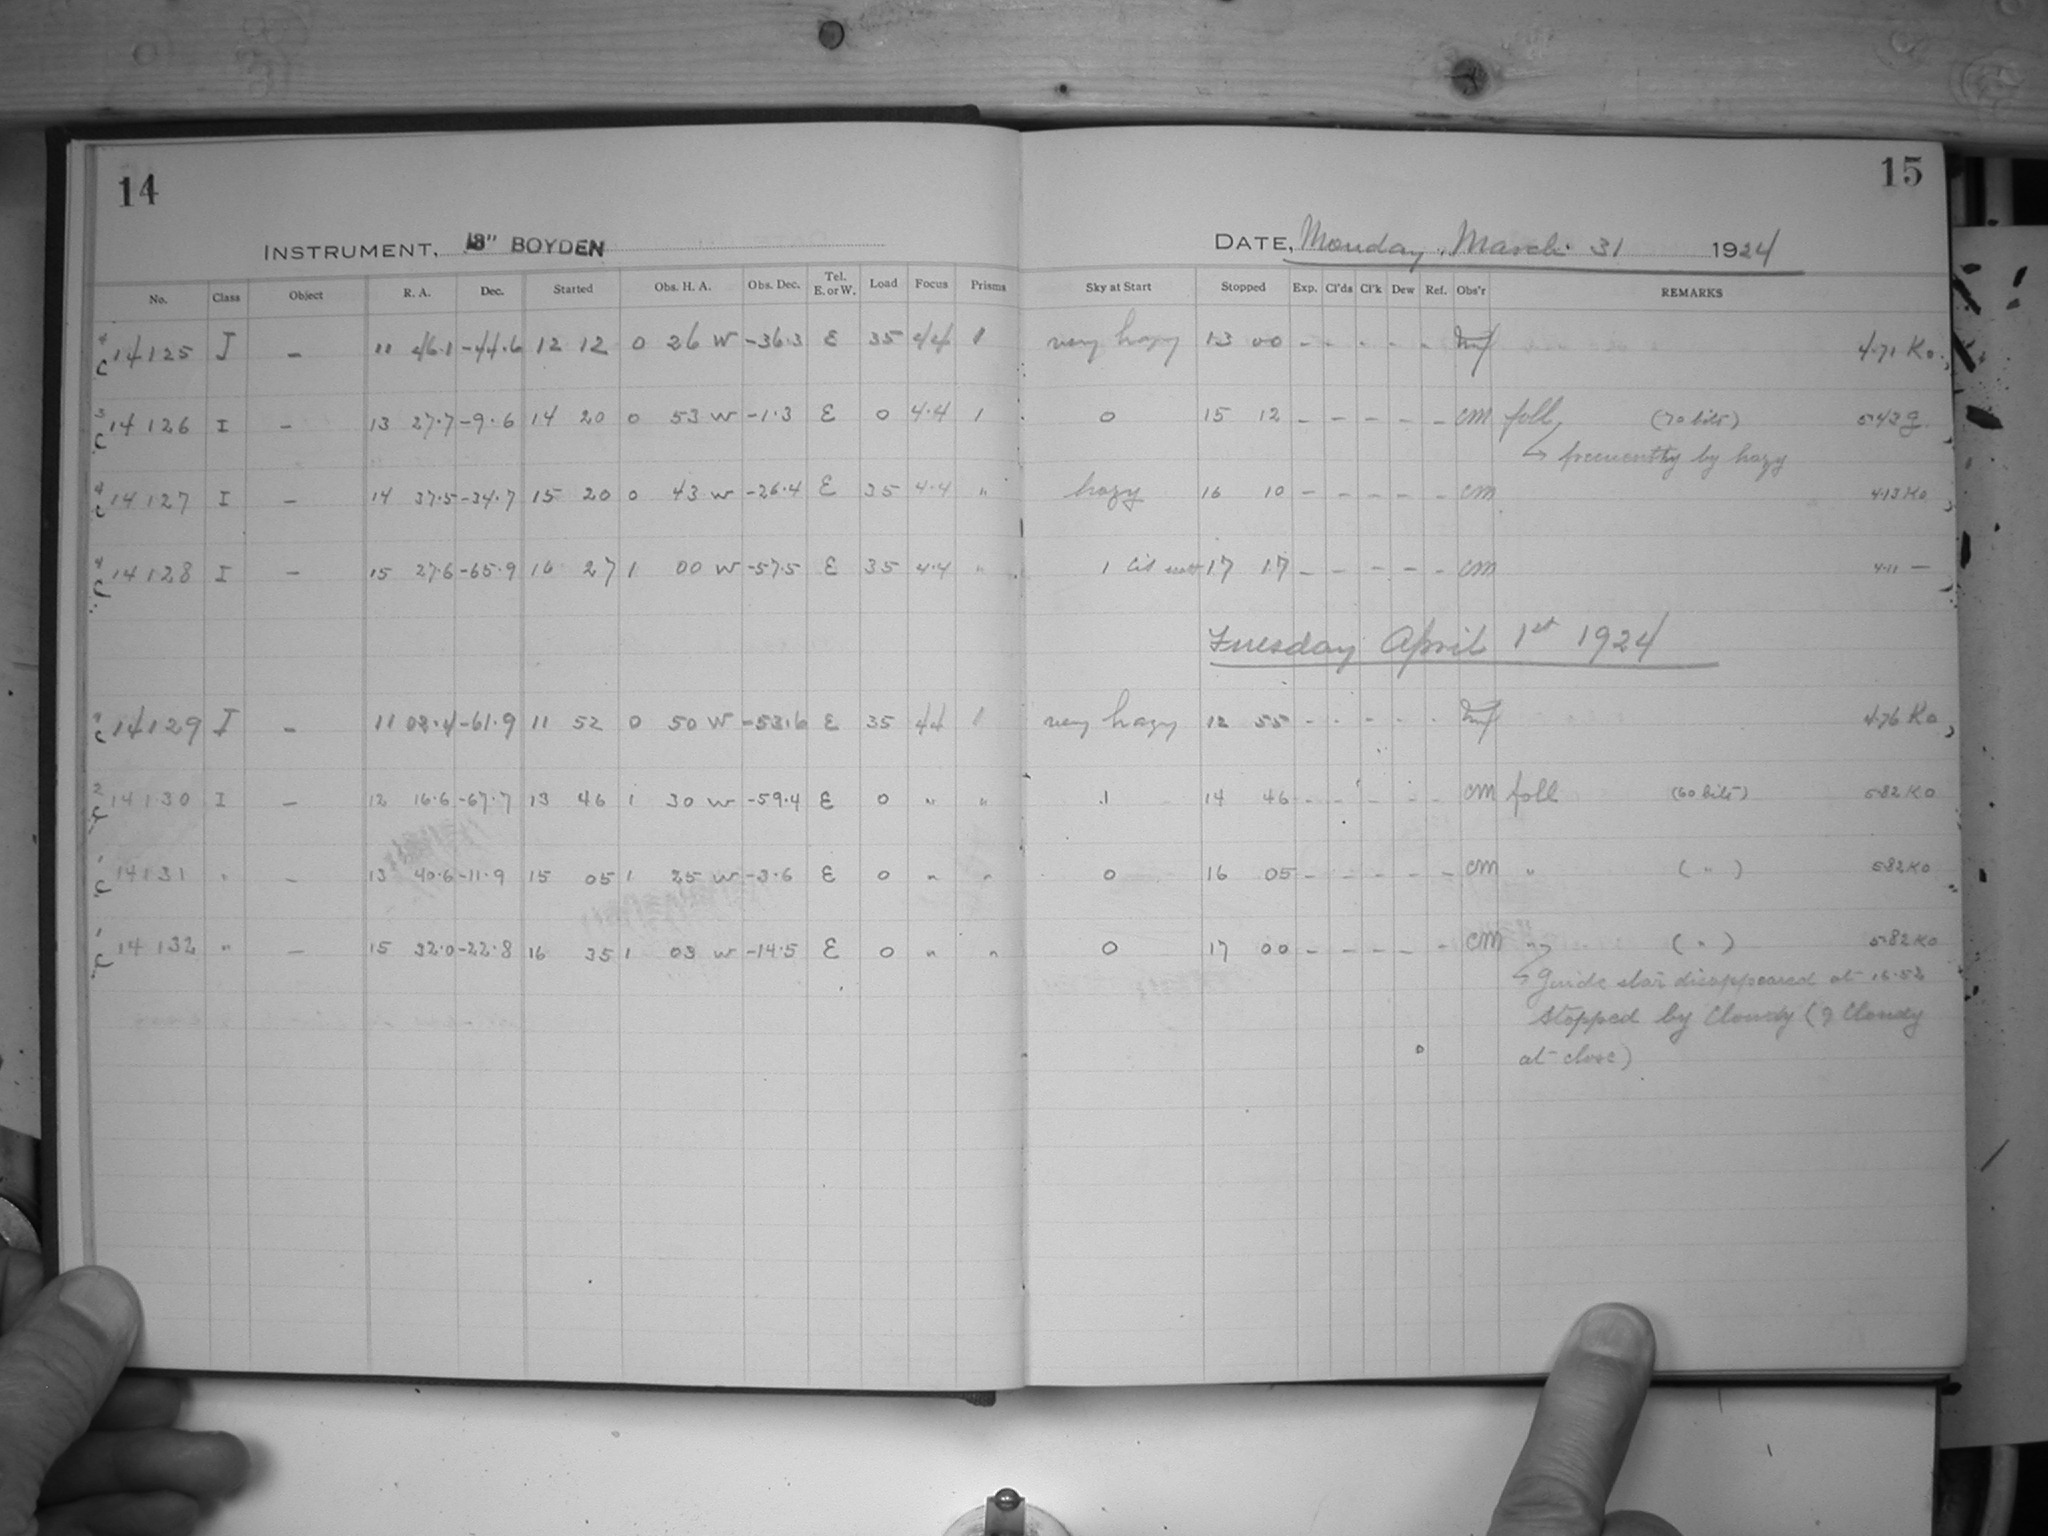 14
15
INSTRUMENT, 13" BOYDEN
DATE, Monday, March 31 1924
No. Class Object R. A. Dec. Started Obs. H. A. Obs. Dec. Tel. E. or W. Load Focus Prisms Sky at Start Stopped Exp. Cl'ds Cl'k Dew Ref. Obs'r REMARKS
14125 I - 11 46.1 -44.6 12 12 0 26 W -36.3 E 35 44 1 very hazy 13 00 - - - - - 4.71 Ko
14126 I - 13 27.7 -9.6 14 20 0 53 W -1.3 E 0 4.4 1 0 15 12 - - - - - CM foll (70 bits) 5.43 g
by hazy
14127 I - 14 37.5 -34.7 15 20 0 43 W -26.4 E 35 4.4 " hazy 16 10 - - - - - CM 4.13 Ko
14128 I - 15 27.6 -65.9 16 27 1 00 W -57.5 E 35 4.4 " 1 17 17 - - - - - CM 4.11 —
Tuesday April 1st 1924
14129 I - 11 02.4 -61.9 11 52 0 50 W -53.6 E 35 44 1 very hazy 12 55 - - - - - 4.76 Ko
14130 I - 12 16.6 -67.7 13 46 1 30 W -59.4 E 0 " " 1 14 46 - - - - - CM foll (60 bits) 5.82 Ko
14131 " - 13 40.6 -11.9 15 05 1 25 W -3.6 E 0 " " 0 16 05 - - - - - CM " ( " ) 5.82 Ko
14132 " - 15 32.0 -22.8 16 35 1 03 W -14.5 E 0 " " 0 17 00 - - - - - CM " ( " ) 5.82 Ko
Guide star disappeared at
Stopped by Cloudy (9 Cloudy
at close)